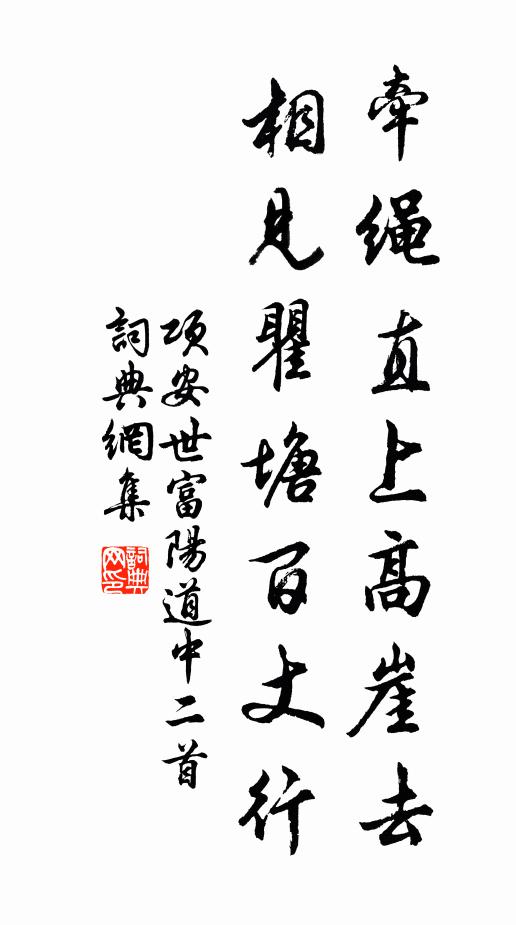 牽繩直上高崖去
相見瞿塘百丈行
項安世富陽道中二首
詞典網集
詞典网印